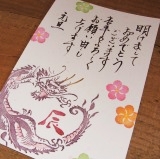 明けまして
おめでとう
ございます
本年もよろしく
お願い申し
上げます
元旦
辰